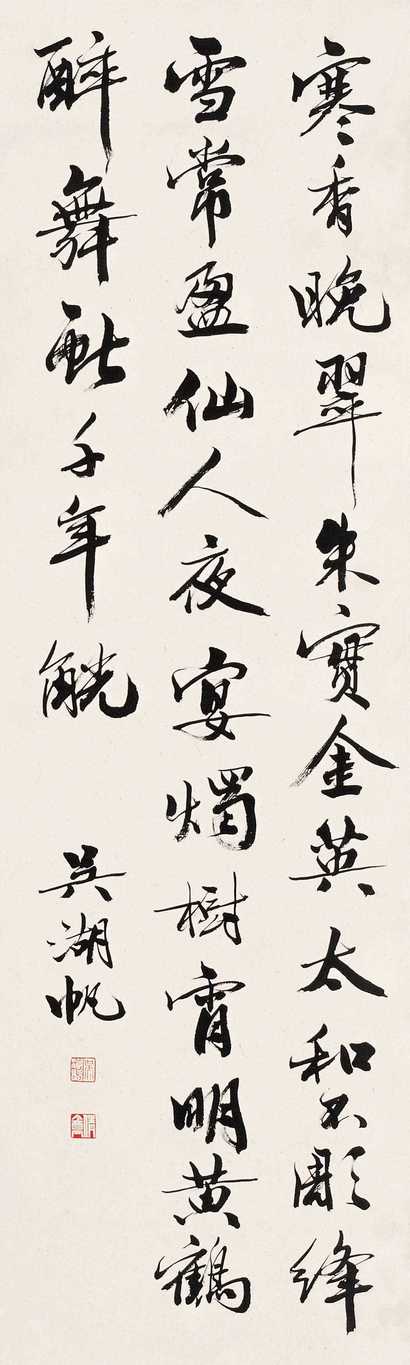 寒香晚翠朱實金英太和不彫絳
雪常盈仙人夜宴燭樹宵明黃鶴
醉舞獻千年觥
吳湖帆